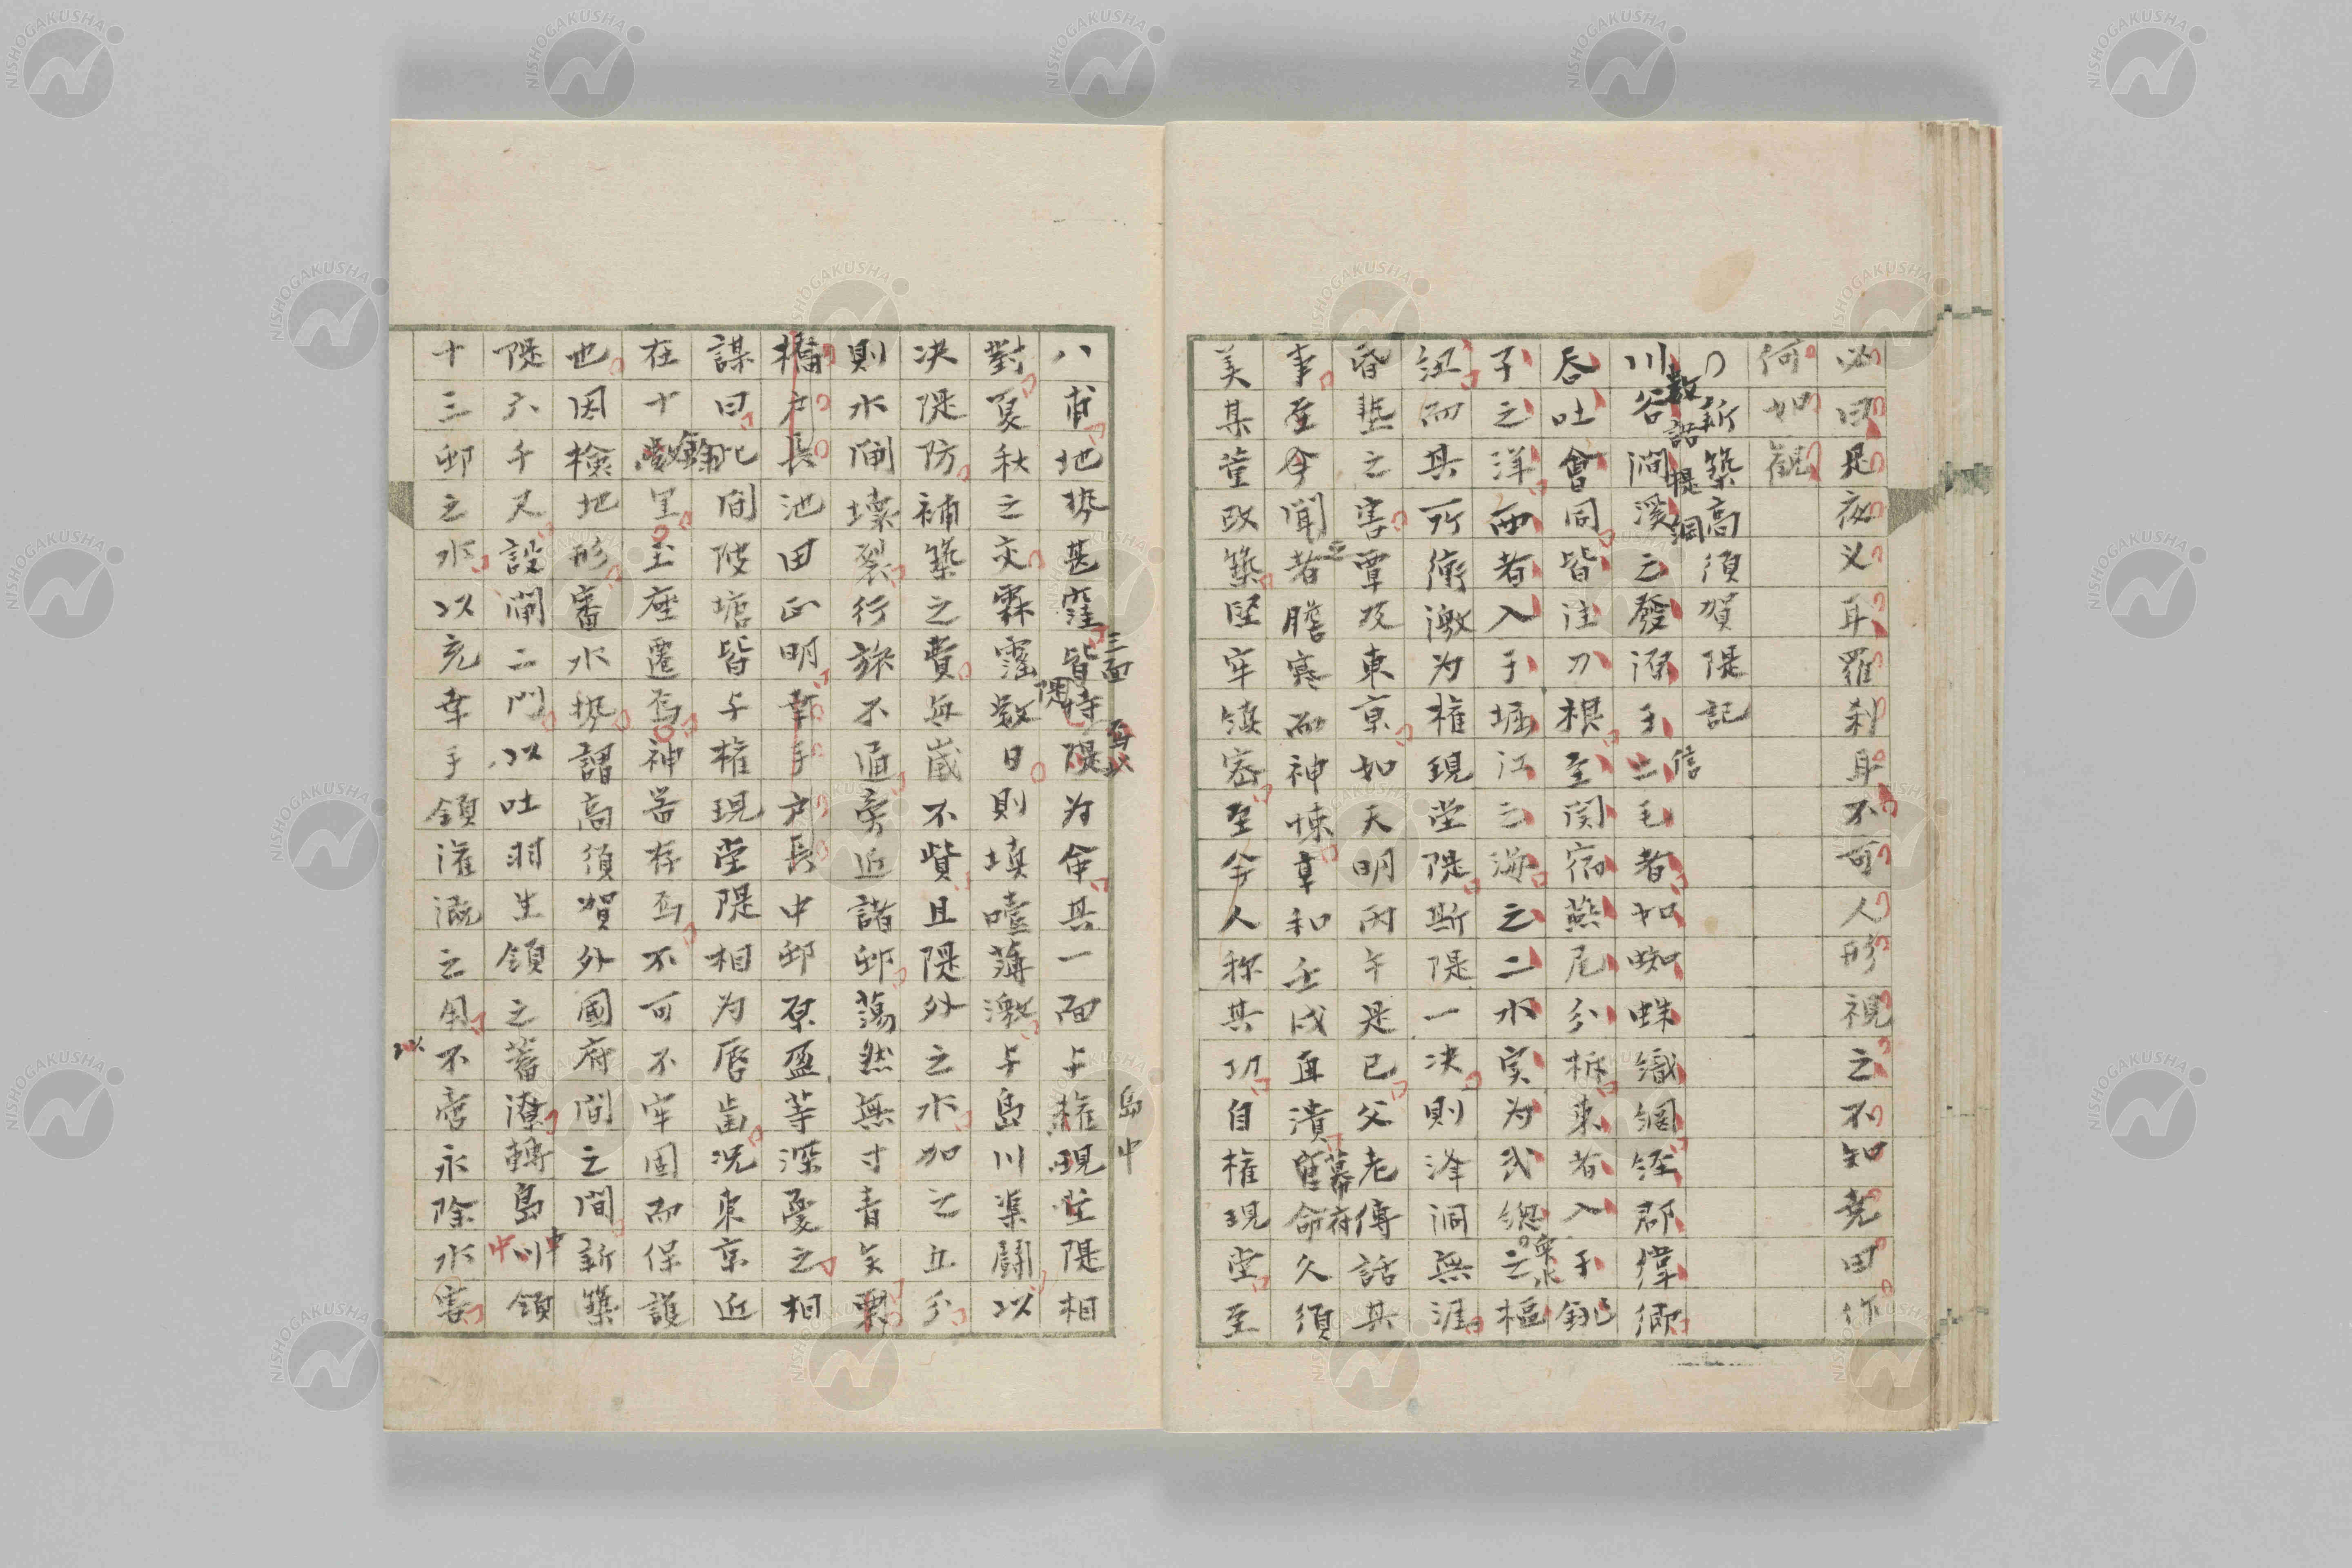 必曰是夜叉耳羅刹耳不可人形視之不知堯田作
何如觀
新築高須賀隄記
川谷澗溪之發源于上毛者如蜘蛛織網經郡緯鄉
数語提綱
信
吞吐會同皆注刀根至関宿燕尾分柝東者入于銚
子之洋西者入于堀江之海之二水実为武総之樞
衆水
紐而其所衝激为権現堂隄斯隄一决則洚洞無涯
昏墊之害覃及東京如天明丙午是已父老傳話其
事至今聞者膽寒而神悚享和壬戌再潰官命久須
幕府
美某董改築堅牢縝密至今人称其功自権現堂至
八甫地勢甚窪皆恃隄为命其一面与権現堂隄相
三面
隄
焉以
島中
對夏秋之交霖霪数日則填噎薄激与島川渠鬪以
决隄防補築之費無歳不貲且隄外之水加之五分
則水閘壊裂行旅不通旁近諸邨蕩然無寸青矣栗
橋戸長池田正明幸手戸長中邨原盈等深憂之相
謀曰此間陂塘皆与権現堂隄相为唇歯况東京近
在十里玉座遷焉神器存焉不可不牢固而保護
数
餘
也因検地形審水勢謂高須賀外國府間之間新築
隄六千尺設閘二門以吐羽生領之蓄潦轉島川領
中
中
十三邨之水以充幸手領潅漑之用不啻永除水害
以
NISHOGAKUSHA